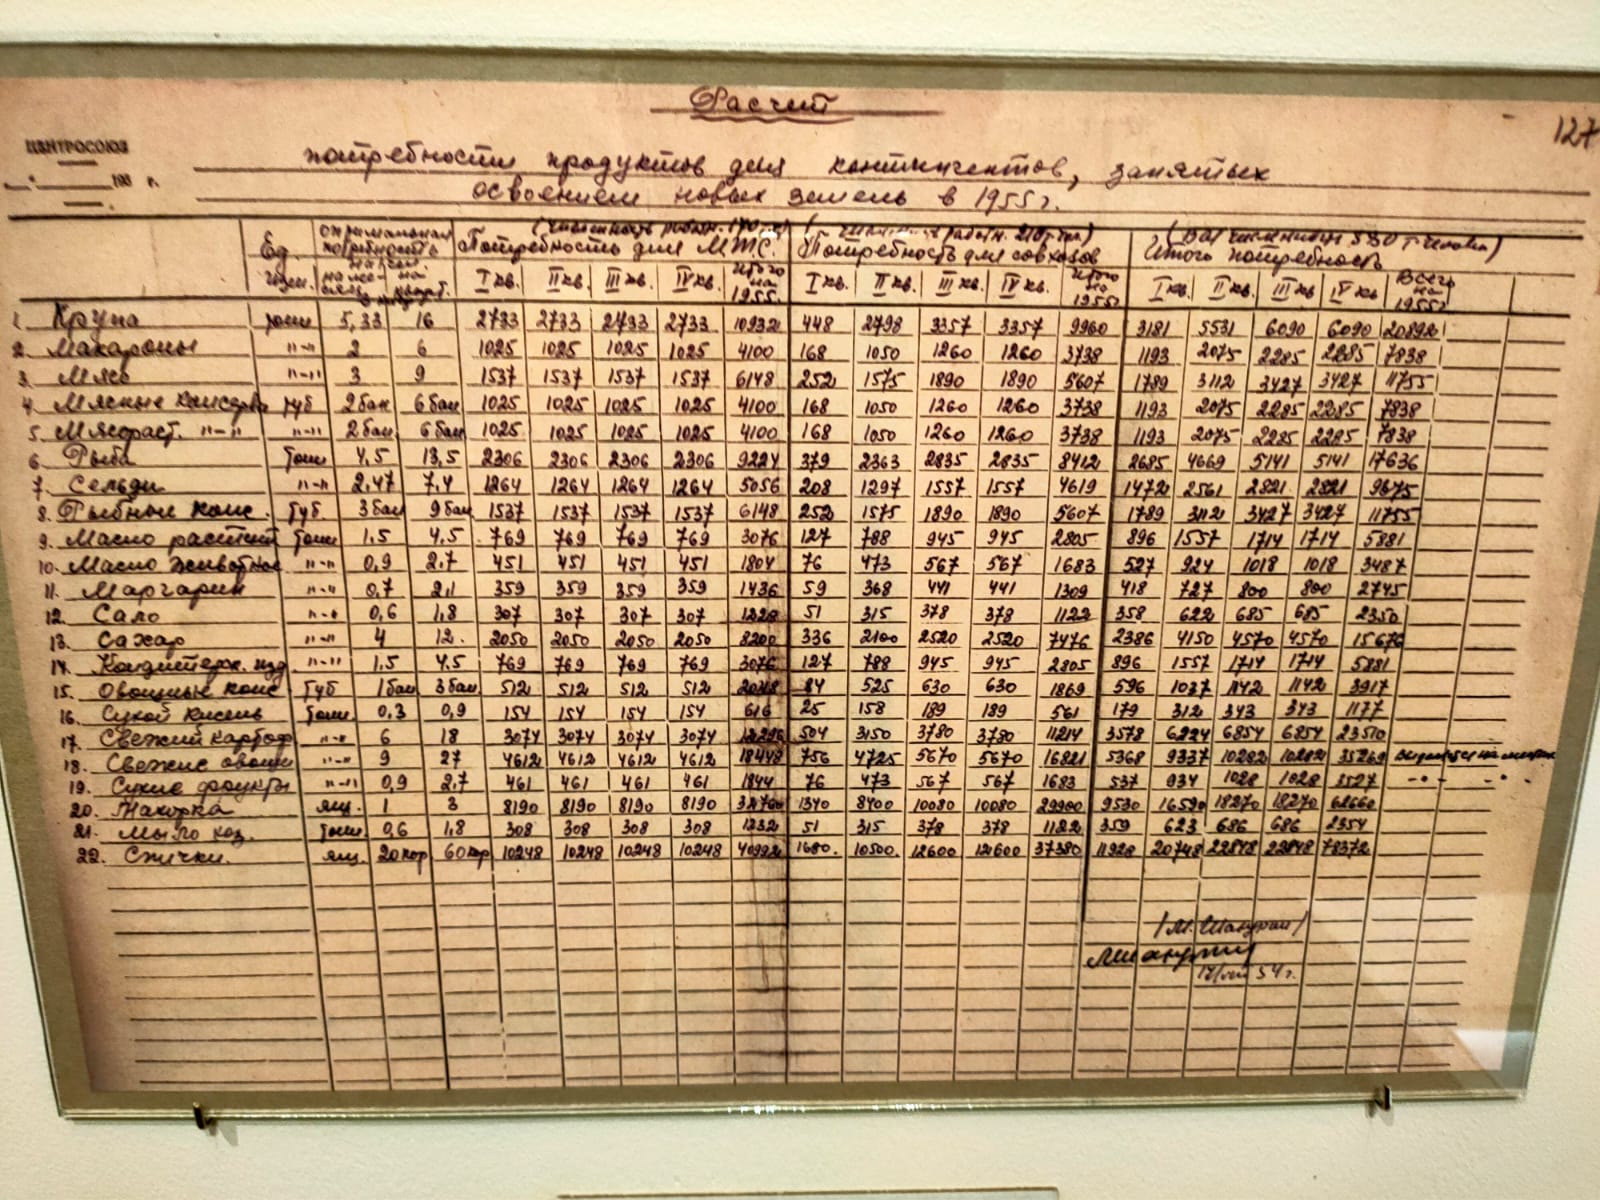 Расчит
127
ЦЕНТРОСОЮЗ
193 г.
потребности продуктов для контингентов, занятых
освоением новых земель в 1955 г.
Ед. изм. потребность Потребность для МТС. Потребность для совхозов Итого потребность
I кв. II кв. III кв. IV кв. Итого на 1955 I кв. II кв. III кв. IV кв. Итого на 1955 I кв. II кв. III кв. IV кв. Всего на 1955г
1. Крупа тонн 5,33 16 2733 2733 2733 2733 10932 448 2798 3357 3357 9960 3181 5531 6090 6090 20892
2. Макароны "-" 2 6 1025 1025 1025 1025 4100 168 1050 1260 1260 3738 1193 2075 2285 2285 7838
3. Мясо "-" 3 9 1537 1537 1537 1537 6148 252 1575 1890 1890 5607 1789 3112 3427 3427 11755
4. Мясные консервы туб 2бан 6бан 1025 1025 1025 1025 4100 168 1050 1260 1260 3738 1193 2075 2285 2285 7838
5. Мясораст. "-" "-" 2бан 6бан 1025 1025 1025 1025 4100 168 1050 1260 1260 3738 1193 2075 2285 2285 7838
6. Рыба тонн 4,5 13,5 2306 2306 2306 2306 9224 379 2363 2835 2835 8412 2685 4669 5141 5141 17636
7. Сельди "-" 2,47 7,4 1264 1264 1264 1264 5056 208 1297 1557 1557 4619 1472 2561 2821 2821 9675
8. Рыбные конс. Туб. 3бан 9бан 1537 1537 1537 1537 6148 252 1575 1890 1890 5607 1789 3112 3427 3427 11755
9. Масло растит тонн 1,5 4,5 769 769 769 769 3076 127 788 945 945 2805 896 1557 1714 1714 5881
10. Масло животное "-" 0,9 2,7 451 451 451 451 1804 76 473 567 567 1683 527 924 1018 1018 3487
11. Маргарин "-" 0,7 2,1 359 359 359 359 1436 59 368 441 441 1309 418 727 800 800 2745
12. Сало "-" 0,6 1,8 307 307 307 307 1228 51 315 378 378 1122 358 622 685 685 2350
13. Сахар "-" 4 12. 2050 2050 2050 2050 8200 336 2100 2520 2520 7476 2386 4150 4570 4570 15676
14. Кондитерск. изд "-" 1,5 4,5 769 769 769 769 3076 127 788 945 945 2805 896 1557 1714 1714 5881
15. Овощные конс Туб 1бан 3бан 512 512 512 512 2048 84 525 630 630 1869 596 1037 1142 1142 3917
16. Сухой кисель тонн. 0,3 0,9 154 154 154 154 616 25 158 189 189 561 179 312 343 343 1177
17. Свежий картоф "-" 6 18 3074 3074 3074 3074 12296 504 3150 3780 3780 11214 3578 6224 6854 6854 23510
18. Свежие овощи "-" 9 27 4612 4612 4612 4612 18448 756 4725 5670 5670 16821 5368 9337 10282 10282 35269
19. Сухие фрукты "-" 0,9 2,7 461 461 461 461 1844 76 473 567 567 1683 537 934 1028 1028 3527 -"- -"-
20. Махорка ящ. 1 3 8190 8190 8190 8190 32760 1340 8400 10080 10080 29900 9530 16590 18270 18270 62660
21. Мыло хоз. тонн. 0,6 1,8 308 308 308 308 1232 51 315 378 378 1122 359 623 686 686 2354
22. Спички. ящ. 20кор 60кор 10248 10248 10248 10248 40992 1680. 10500. 12600 12600 37380 11928 20748 22848 22848 78372
/М. Шапурин/
54 г.